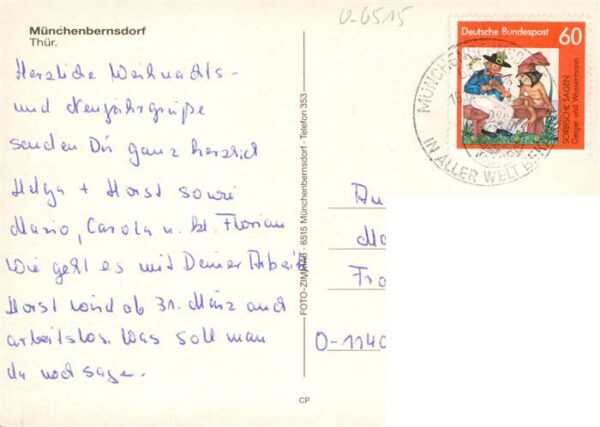 Münchenbernsdorf
Thür.
Herzliche Weihnachts-
und Neujahrsgrüße
senden Dir ganz herzlich
Helga + Horst sowie
Mario, Carola u. kl. Florian
Wie geht es mit Deiner Arbeit
Horst wird ab 31. März auch
arbeitslos. Was soll man
da noch sagen.
FOTO-ZIMMER · 6515 Münchenbernsdorf · Telefon 353
CP
O-6515
Deutsche Bundespost
60
SORBISCHE SAGEN
Geiger und Wassermann
IN ALLER WELT
Fra
O-1140